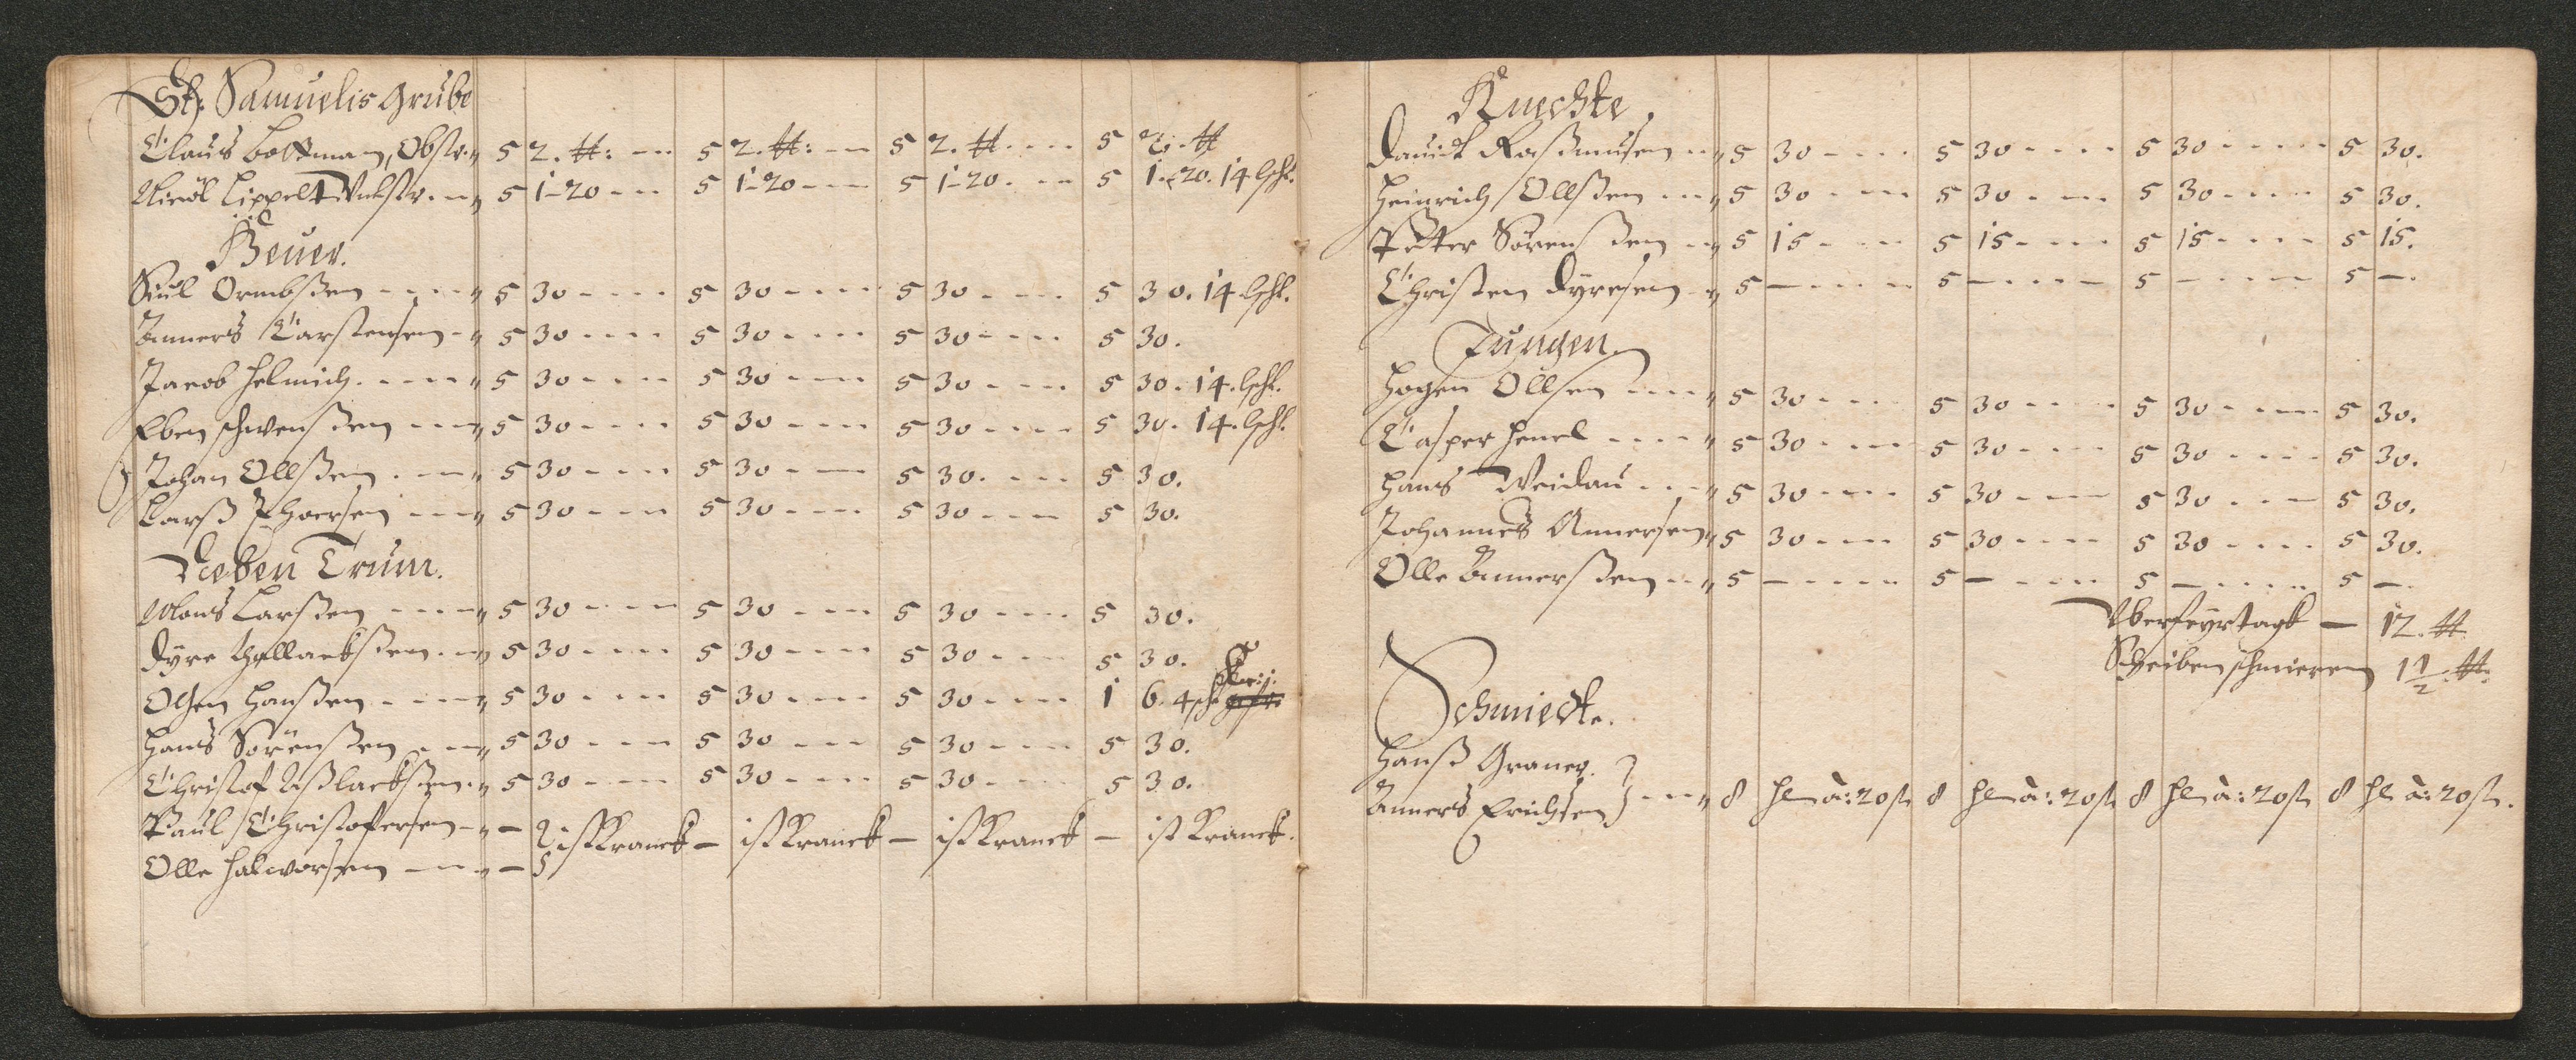 St: Samuelis Grube
Claus Boltman, Obstr. 5 2. tt: --- 5 2. tt: --- 5 2. tt. --- 5 2. tt
Nicol Lippelt 5 1-20 --- 5 1-20 --- 5 1-20. --- 5 1. 20. 14 lsch.
Heuer.
Siul Ormbßen ---- 5 30 ---- 5 30 ---- 5 30 ---- 5 30. 14. lsch.
Anners Carstensen - 5 30 ---- 5 30 ---- 5 30 ---- 5 30.
Jacob Helmich. ---- 5 30 ---- 5 30 ---- 5 30 ---- 5 30. 14. lsch.
Eben Schwenßen --- 5 30 ---- 5 30 ---- 5 30 ---- 5 30. 14. lsch.
Johan Ollßen. --- 5 30 ---- 5 30 ---- 5 30. --- 5 30.
Larß ---- 5 30 ---- 5 30 ---- 5 30 ---- 5 30.
Lieben Trum.
Mons Larßen ---- 5 30 ---- 5 30 ---- 5 30 ---- 5 30.
Dyre ßen. -- 5 30 ---- 5 30 ---- 5 30 ---- 5 30.
Olßen Hanßen ---- 5 30 ---- 5 30 ---- 5 30 ---- 1 6. 4 sch
Hans Sörenßen --- 5 30 ---- 5 30 ---- 5 30 ---- 5 30.
Christof Aßlackßen. 5 30 ---- 5 30 ---- 5 30 ---- 5 30.
Paul Christofersen - - ist Kranck - ist Kranck - ist Kranck - ist Kranck.
Olle Halworsen --- -
Knechte.
Dauidt Raßmusen -- 5 30 ---- 5 30 ---- 5 30 ----- 5 30.
Heinrich Ollßen --- 5 30 ---- 5 30 ---- 5 30 ---- 5 30.
Petter Sörenßen -- 5 15 ---- 5 15 ---- 5 15 ---- 5 15.
Christen Dyresen - 5 ----- 5 ----- 5 ----- 5 -.
Jungen.
Hogen Ollsen ---- 5 30 ---- 5 30 ---- 5 30 ---- 5 30.
Casper Henel ---- 5 30 ---- 5 30 ---- 5 30 ---- 5 30.
Hans Weidau --- 5 30 ---- 5 30 ---- 5 30 ---- 5 30.
Johannes Annersen 5 30 ---- 5 30 ---- 5 30 ---- 5 30.
Olle Annerßen -- 5 ----- 5 ----- 5 ----- 5 -.
Vberfeyrtagk — 12. tt
Scheiben schmieren 1 1/2 tt.
Schmiedte.
Hanß Graner.
Anners Erichsen --- 8 à: 20 ß 8 à: 20 ß 8 à: 20 ß 8 à: 20 ß.